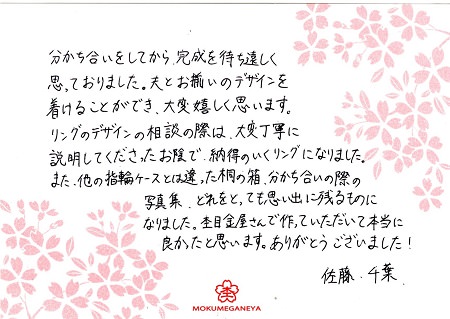 分かち合いをしてから、完成を待ち遠しく
思っておりました。夫とお揃いのデザインを
着けることができ、大変嬉しく思います。
リングのデザインの相談の際は、大変丁寧に
説明してくださったお陰で、納得のいくリングになりました。
また、他の指輪ケースとは違った桐の箱、分かち合いの際の
写真集、どれをとっても思い出に残るものに
なりました。杢目金屋さんで作っていただいて本当に
良かったと思います。ありがとうございました！
佐藤・千葉
MOKUMEGANEYA